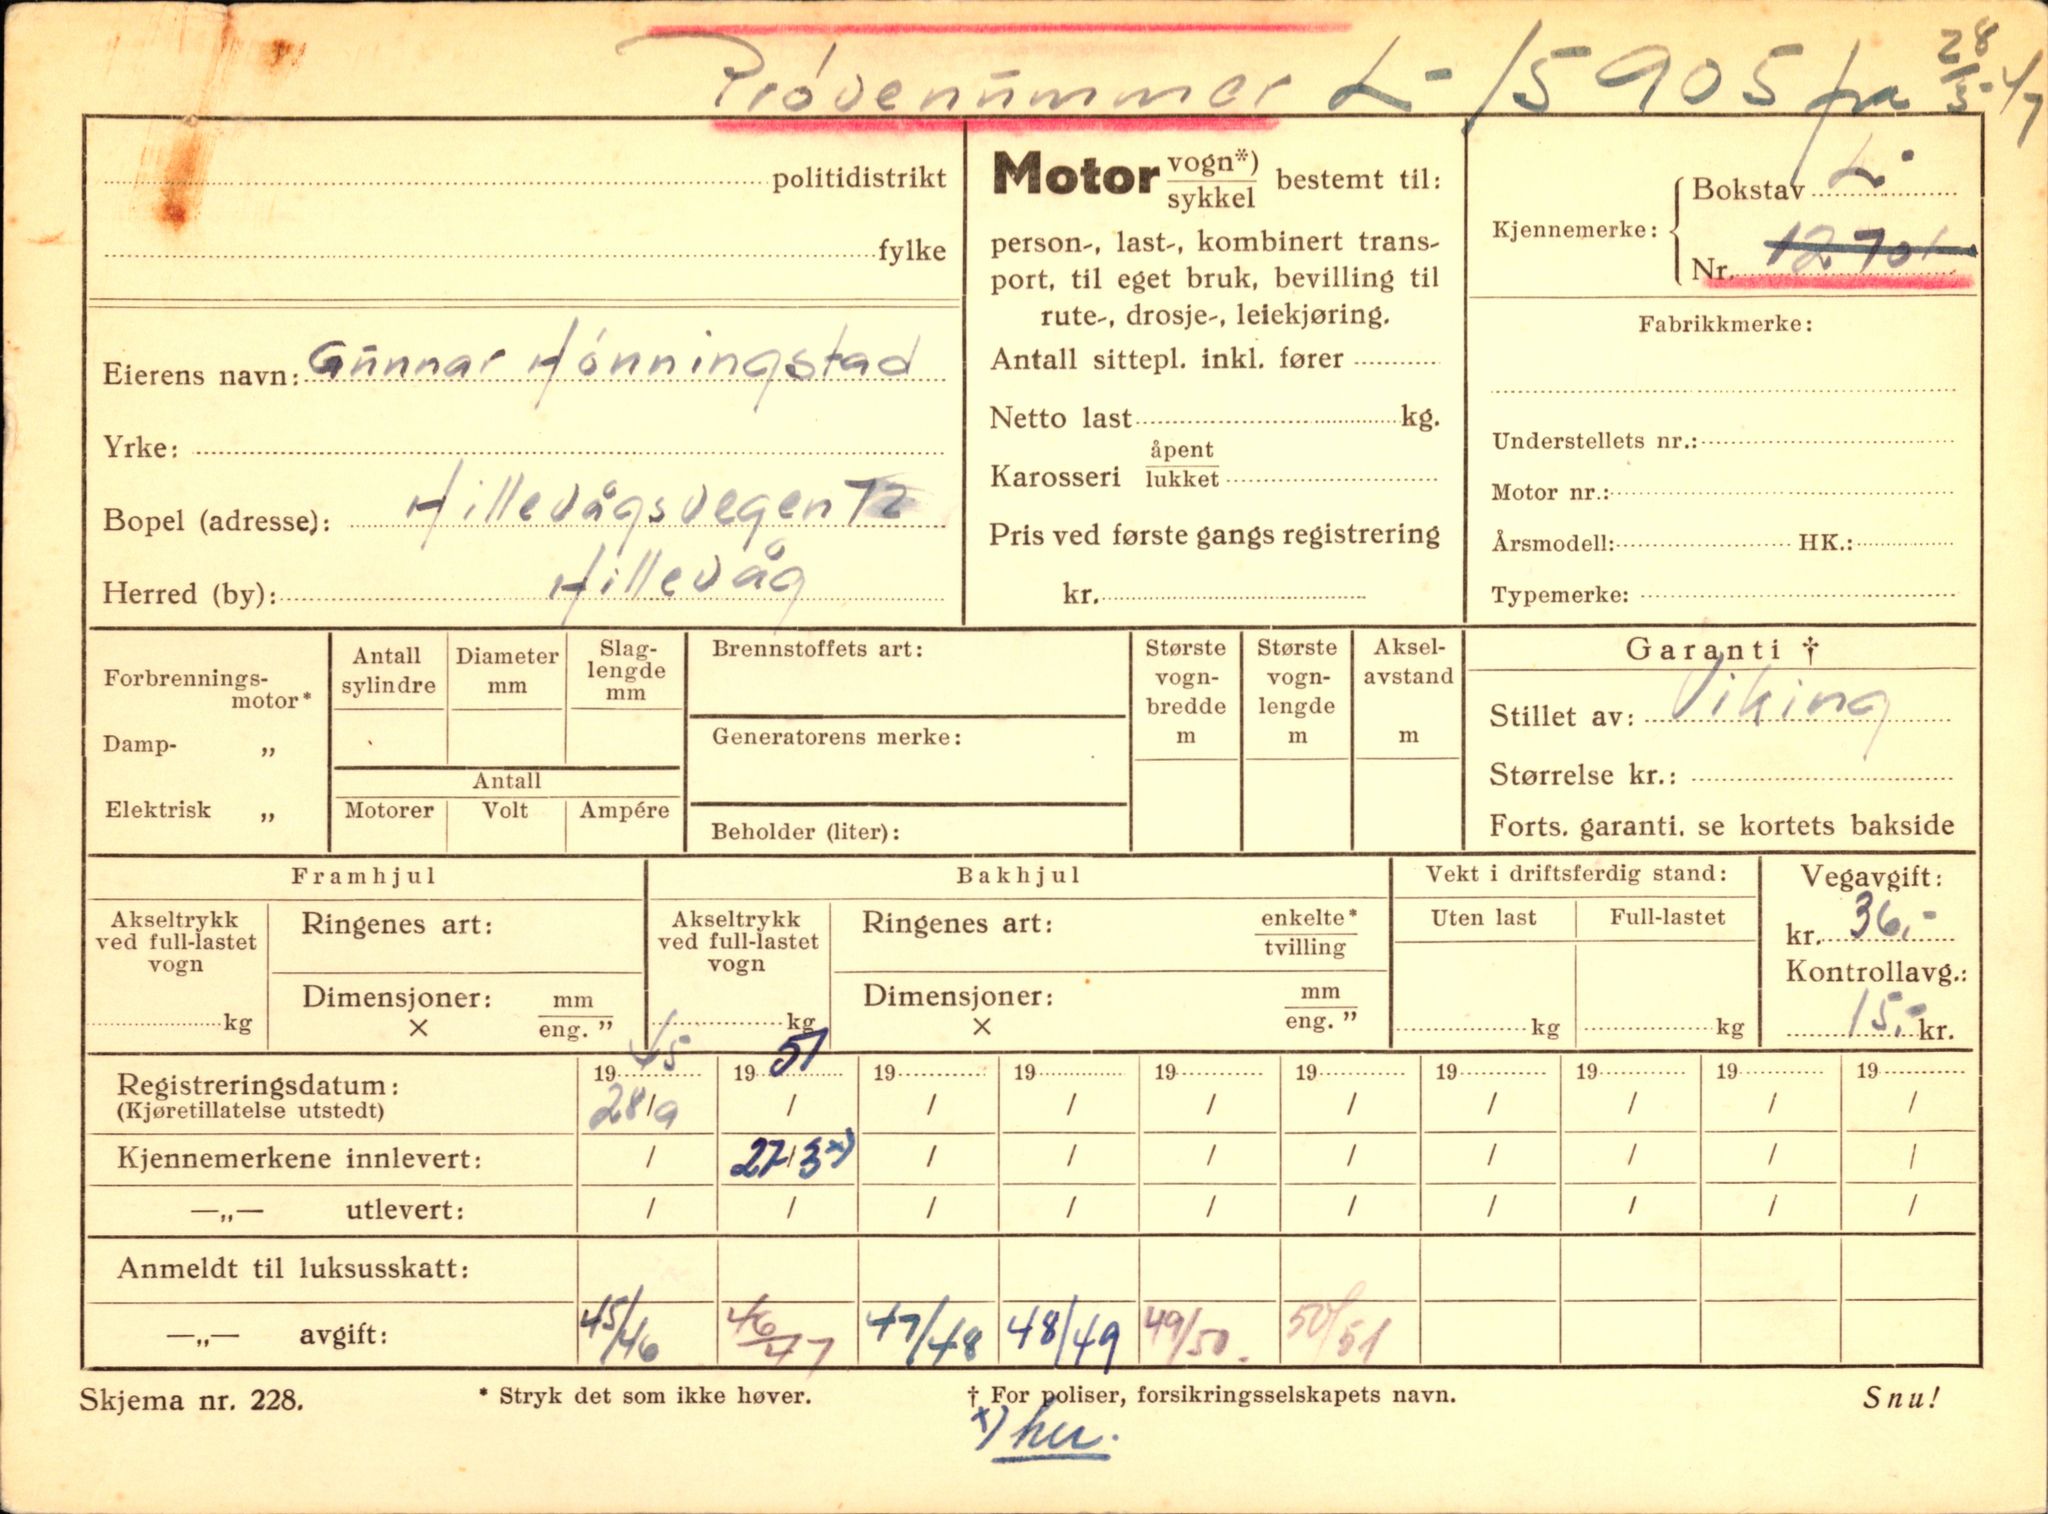 Prövenummer L-15905 fra 28/5-47
politidistrikt
fylke
Eierens navn: Gunnar Hönningstad
Yrke:
Bopel (adresse): Hillevågsvegen 72
Herred (by): Hillevåg
Motor vogn*) / sykkel bestemt til:
person-, last-, kombinert trans-
port, til eget bruk, bevilling til
rute-, drosje-, leiekjøring.
Antall sittepl. inkl. fører
Netto last kg.
Karosseri åpent / lukket
Pris ved første gangs registrering
kr.
Kjennemerke: Bokstav L-
Nr. 12701
Fabrikkmerke:
Understellets nr.:
Motor nr.:
Årsmodell: HK.:
Typemerke:
Forbrennings-
motor*
Damp- „
Elektrisk „
Antall
sylindre
Diameter
mm
Slag-
lengde
mm
Antall
Motorer Volt Ampére
Brennstoffets art:
Generatorens merke:
Beholder (liter):
Største
vogn-
bredde
m
Største
vogn-
lengde
m
Aksel-
avstand
m
Garanti †
Stillet av: Viking
Størrelse kr.:
Forts. garanti. se kortets bakside
Framhjul
Akseltrykk
ved full-lastet
vogn
kg
Ringenes art:
Dimensjoner: mm / eng. ”
×
Bakhjul
Akseltrykk
ved full-lastet
vogn
kg
Ringenes art: enkelte* / tvilling
Dimensjoner: mm / eng. ”
×
Vekt i driftsferdig stand:
Uten last Full-lastet
kg kg
Vegavgift:
kr. 36,-
Kontrollavg.:
15,- kr.
Registreringsdatum: 19 45 19 51 19 19 19 19 19 19 19 19
(Kjøretillatelse utstedt) 28/9 / / / / / / / / /
Kjennemerkene innlevert: / 27/3 x) / / / / / / / /
—„— utlevert: / / / / / / / / / /
Anmeldt til luksusskatt:
—„— avgift: 45/46 46/47 47/48 48/49 49/50. 50/51
Skjema nr. 228. * Stryk det som ikke høver. † For poliser, forsikringsselskapets navn. Snu!
x) her.